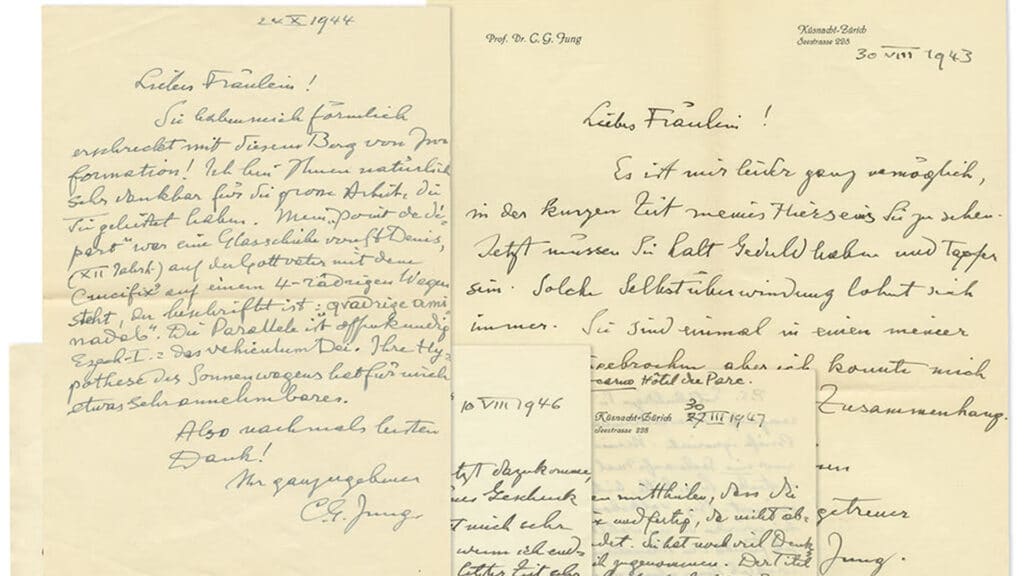 24 X 1944
Liebes Fräulein!
Sie haben mich förmlich
erschreckt mit diesem Berg von In-
formation! Ich bin Ihnen natürlich
sehr dankbar für die grosse Arbeit, die
Sie geleistet haben. Mein "point de dé-
part" war eine Glasscheibe von St Denis,
(XII Jahrh.) auf der Gottvater mit dem
Crucifix auf einem 4-rädrigen Wagen
steht, der beschriftet ist: "quadrige ami
nadab". Die Parallele ist offenkundig
Ezech. I. = das vehiculum Dei. Ihre Hy-
pothese des Sonnenwagens hat für mich
etwas sehr annehmbares.
Also nochmals besten
Dank!
Ihr ganz ergebener
C.G. Jung.
Prof. Dr. C. G. Jung
Küsnacht-Zürich
Seestrasse 228
30 VIII 1943
Liebes Fräulein!
Es ist mir leider ganz unmöglich,
in der kurzen Zeit meines Hierseins Sie zu sehen.
Jetzt müssen Sie halt Geduld haben und tapfer
sein. Solche Selbstüberwindung lohnt sich
immer. Sie sind einmal in einen meiner
aber ich konnte mich
Zusammenhang.
getreuer
Jung.
10 VIII 1946
jetzt dazukomme,
Geschenk
mich sehr
wenn ich
letzter Zeit sehr
Hôtel du Parc.
Küsnacht-Zürich
Seestrasse 228
30
27 III 1947
mittheilen, dass die
und fertig, da nicht ab-
Sie hat noch viel Denk
genommen. Der Titel